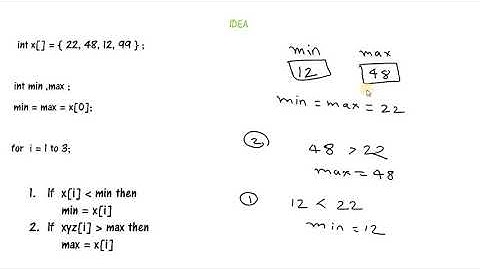 IDEA
int x[] = { 22, 48, 12, 99 } ;
int min ,max ;
min = max = x[0];
for i = 1 to 3;
1. If x[i] < min then
min = x[i]
2. If xyz[i] > max then
max = x[i]
min max
12 48
min = max = 22
2 48 > 22
max = 48
1 12 < 22
min = 12